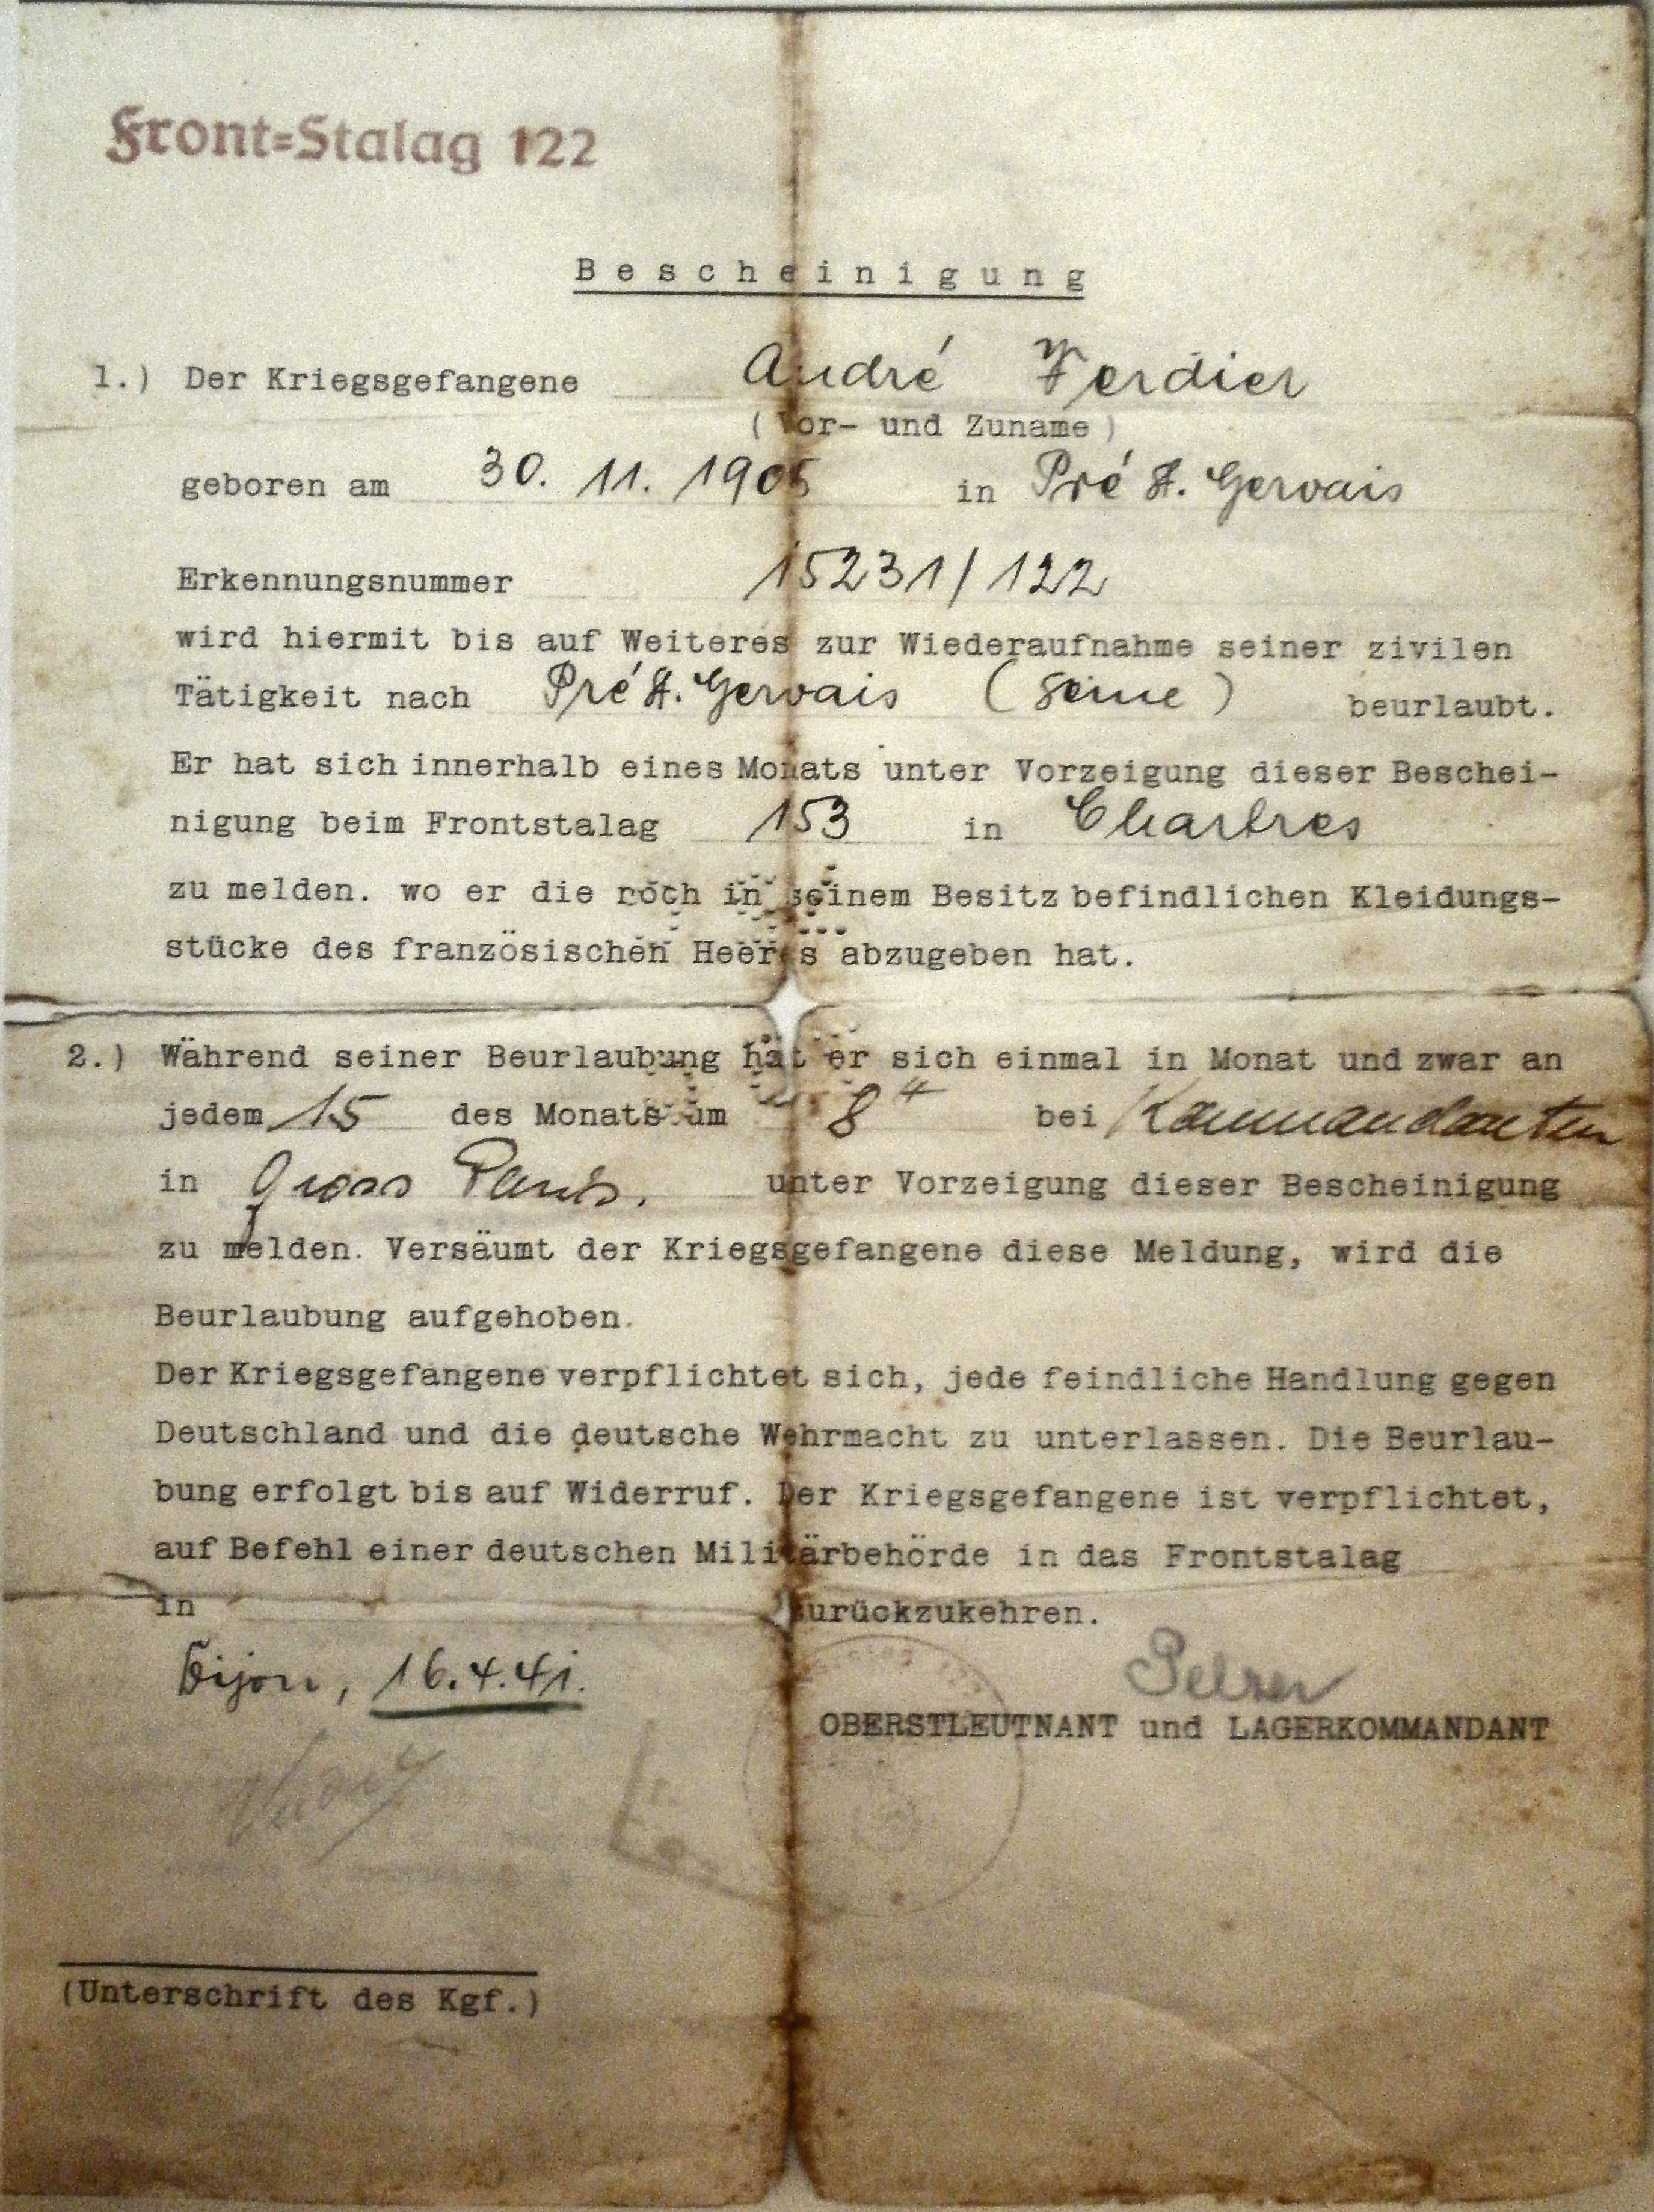 Front=Stalag 122
Bescheinigung
1.) Der Kriegsgefangene André Verdier
(Vor- und Zuname)
geboren am 30. 11. 1905 in Pré St. Gervais
Erkennungsnummer 15231/122
wird hiermit bis auf Weiteres zur Wiederaufnahme seiner zivilen
Tätigkeit nach Pré St. Gervais (Seine) beurlaubt.
Er hat sich innerhalb eines Monats unter Vorzeigung dieser Beschei-
nigung beim Frontstalag 153 in Chartres
zu melden. wo er die noch in seinem Besitz befindlichen Kleidungs-
stücke des französischen Heeres abzugeben hat.
2.) Während seiner Beurlaubung hat er sich einmal in Monat und zwar an
jedem 15 des Monats um 8 bei Kommandanten
in Gross Paris. unter Vorzeigung dieser Bescheinigung
zu melden. Versäumt der Kriegsgefangene diese Meldung, wird die
Beurlaubung aufgehoben.
Der Kriegsgefangene verpflichtet sich, jede feindliche Handlung gegen
Deutschland und die deutsche Wehrmacht zu unterlassen. Die Beurlau-
bung erfolgt bis auf Widerruf. Der Kriegsgefangene ist verpflichtet,
auf Befehl einer deutschen Militärbehörde in das Frontstalag
in zurückzukehren.
Dijon, 16.4.41.
OBERSTLEUTNANT und LAGERKOMMANDANT
(Unterschrift des Kgf.)